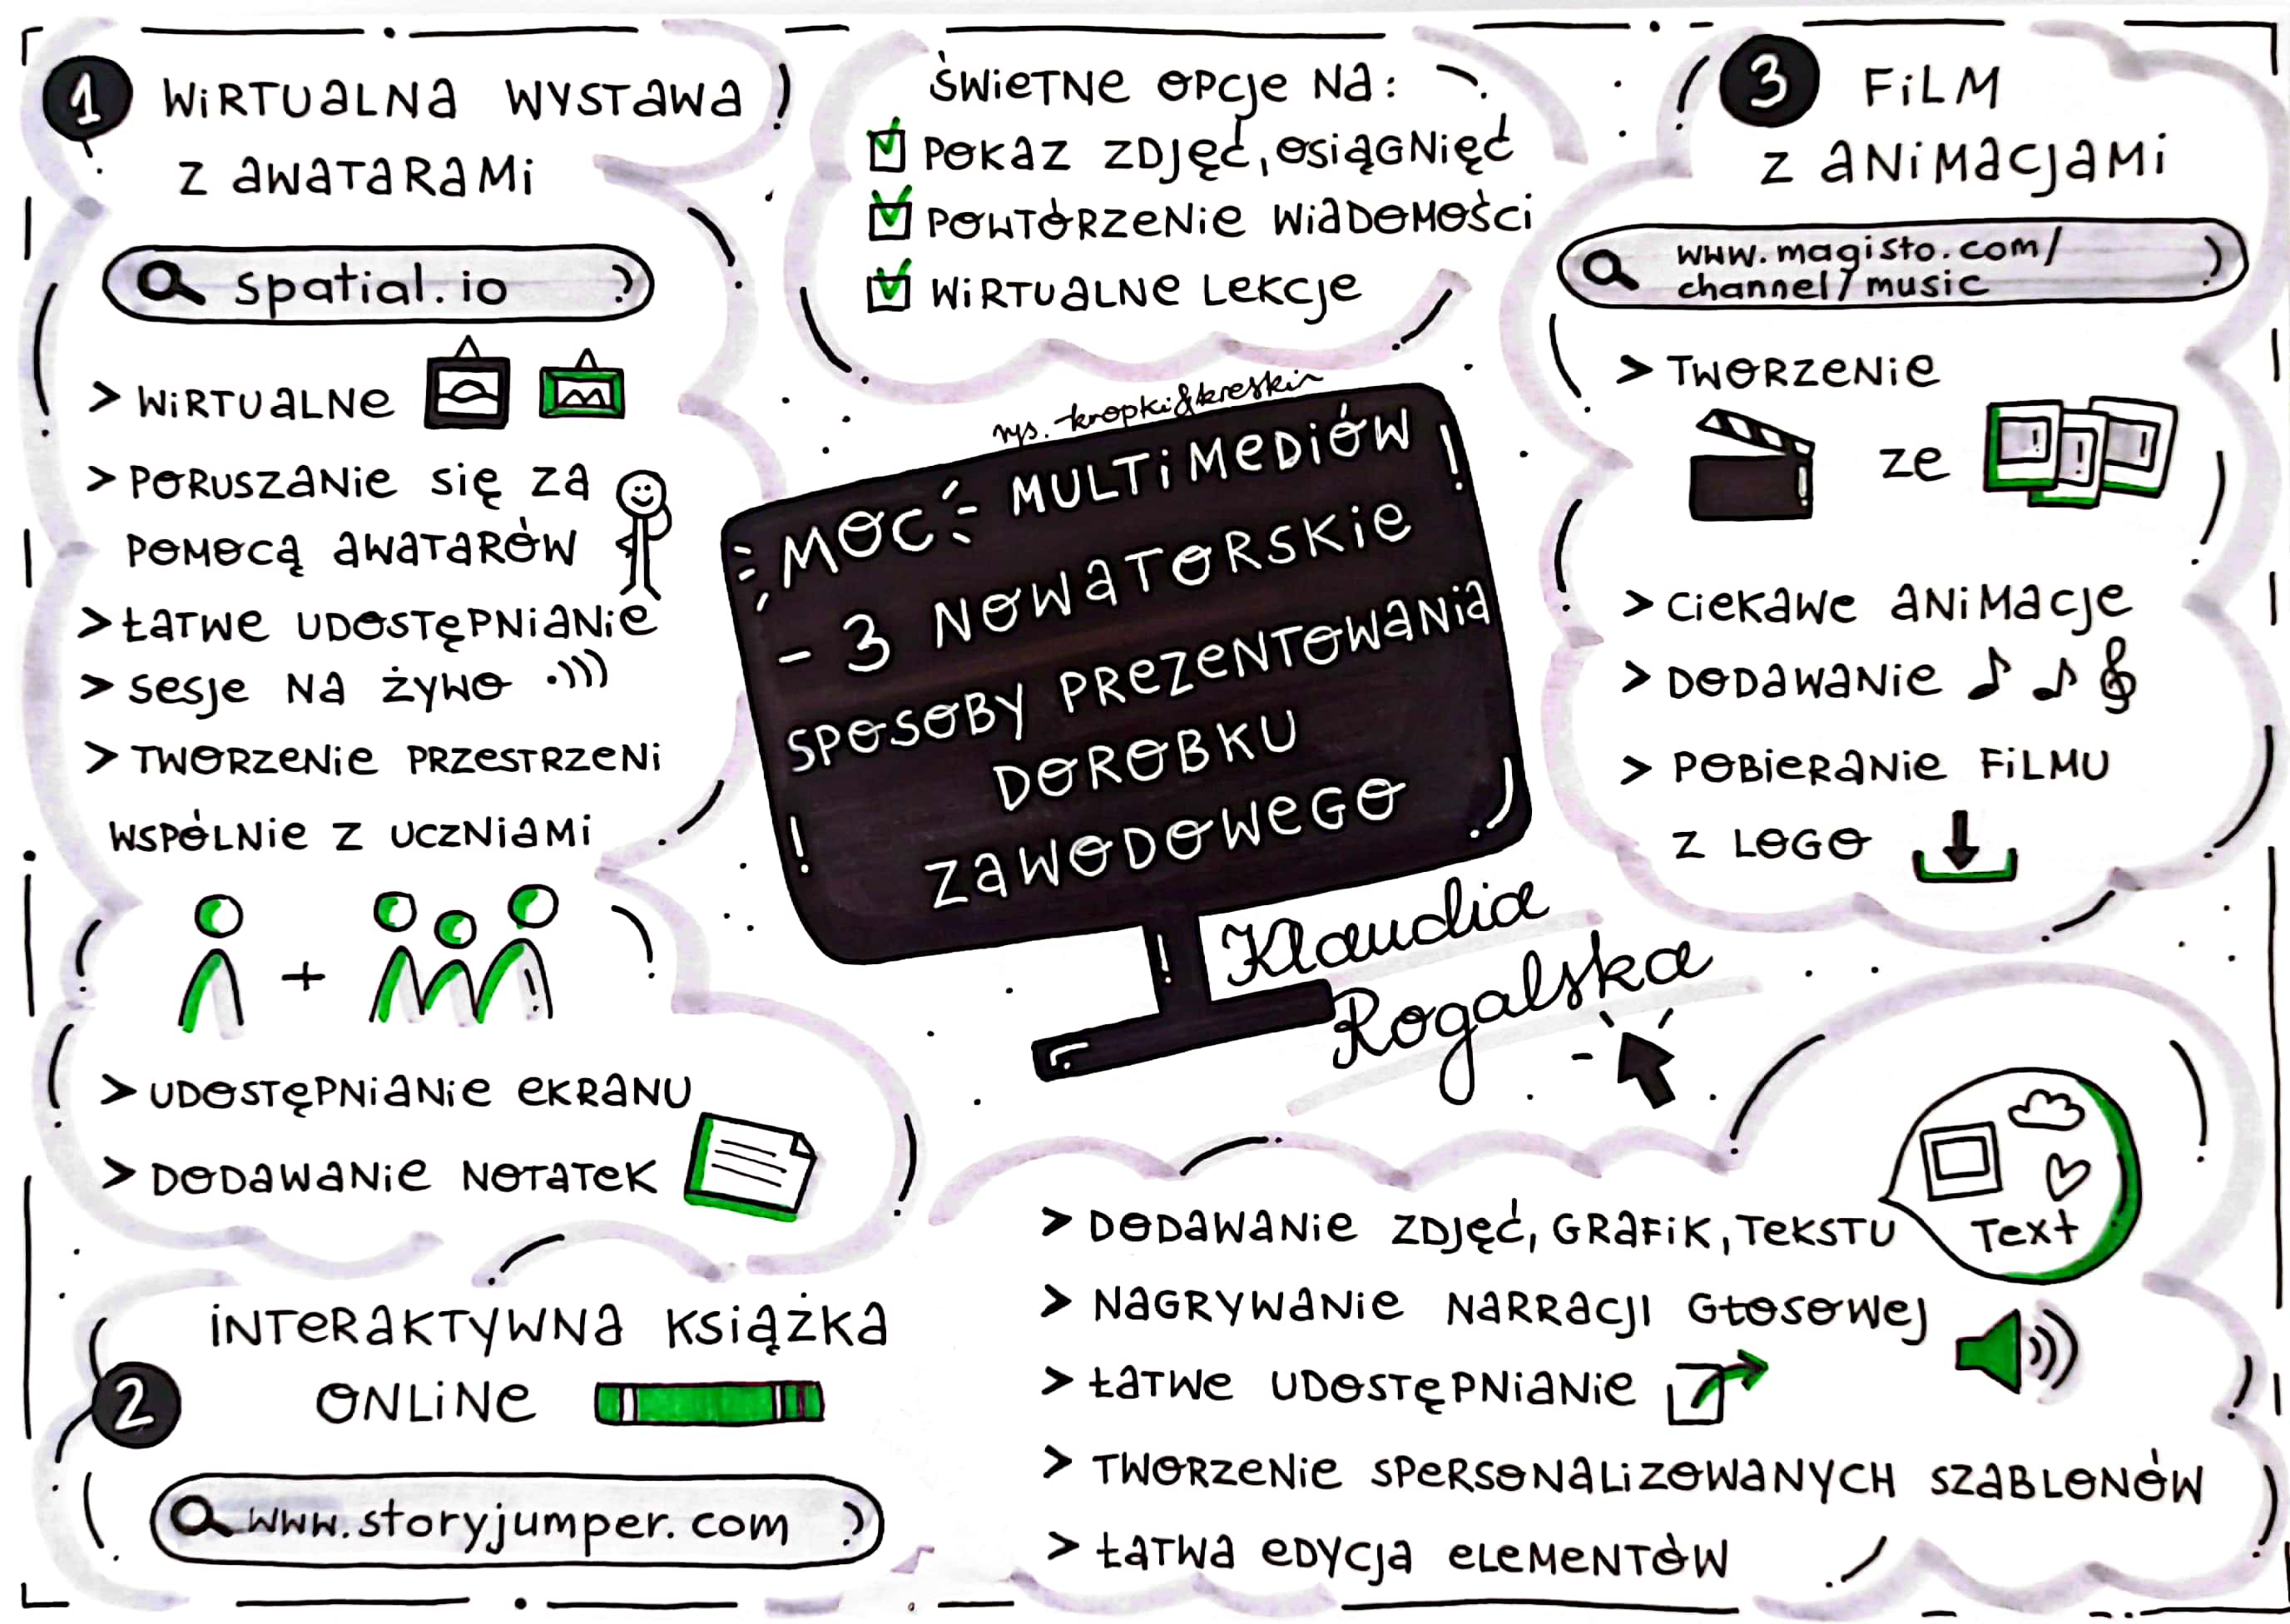 1 WIRTUALNA WYSTAWA
Z AWATARAMI
spatial.io
> WIRTUALNE
> PORUSZANIE SIĘ ZA
POMOCĄ AWATARÓW
> ŁATWE UDOSTĘPNIANIE
> SESJE NA ŻYWO
> TWORZENIE PRZESTRZENI
WSPÓLNIE Z UCZNIAMI
+
> UDOSTĘPNIANIE EKRANU
> DODAWANIE NOTATEK
ŚWIETNE OPCJE NA:
POKAZ ZDJĘĆ, OSIĄGNIĘĆ
POWTÓRZENIE WIADOMOŚCI
WIRTUALNE LEKCJE
rys. kropki&kreski
MOC MULTIMEDIÓW
- 3 NOWATORSKIE
SPOSOBY PREZENTOWANIA
DOROBKU
ZAWODOWEGO
Klaudia
Rogalska
3 FILM
Z ANIMACJAMI
www.magisto.com/
channel/music
> TWORZENIE
ZE
> CIEKAWE ANIMACJE
> DODAWANIE
> POBIERANIE FILMU
Z LOGO
2 INTERAKTYWNA KSIĄŻKA
ONLINE
www.storyjumper.com
> DODAWANIE ZDJĘĆ, GRAFIK, TEKSTU
Text
> NAGRYWANIE NARRACJI GŁOSOWEJ
> ŁATWE UDOSTĘPNIANIE
> TWORZENIE SPERSONALIZOWANYCH SZABLONÓW
> ŁATWA EDYCJA ELEMENTÓW